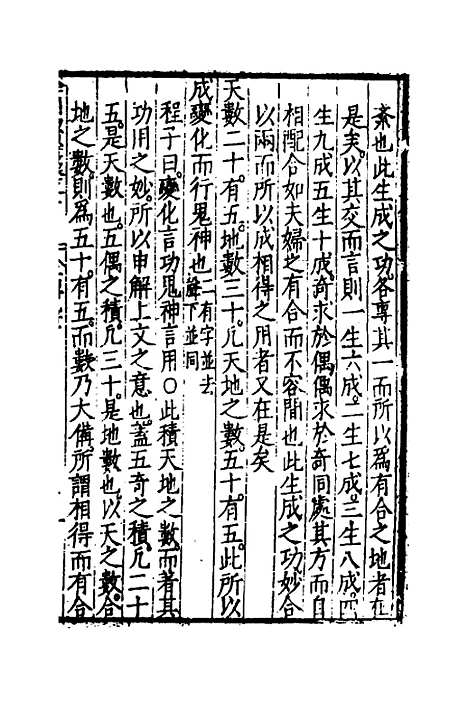 紊也此生成之功各專其一而所以為有合之地者在
是矣以其交而言則一生六成二生七成三生八成四
生九成五生十成奇求於偶偶求於奇同處其方而自
相配合如夫婦之有合而不容間也此生成之功妙合
以兩而所以成相得之用者又在是矣
天數二十有五地數三十凡天地之數五十有五此所以
成變化而行鬼神也
有字並去
聲下並同
程子曰變化言功鬼神言用○此積天地之數而著其
功用之妙所以申解上文之意也蓋五奇之積凡二十
五是天數也五偶之積凡三十是地數也以天之數合
地之數則為五十有五而數乃大備所謂相得而有合